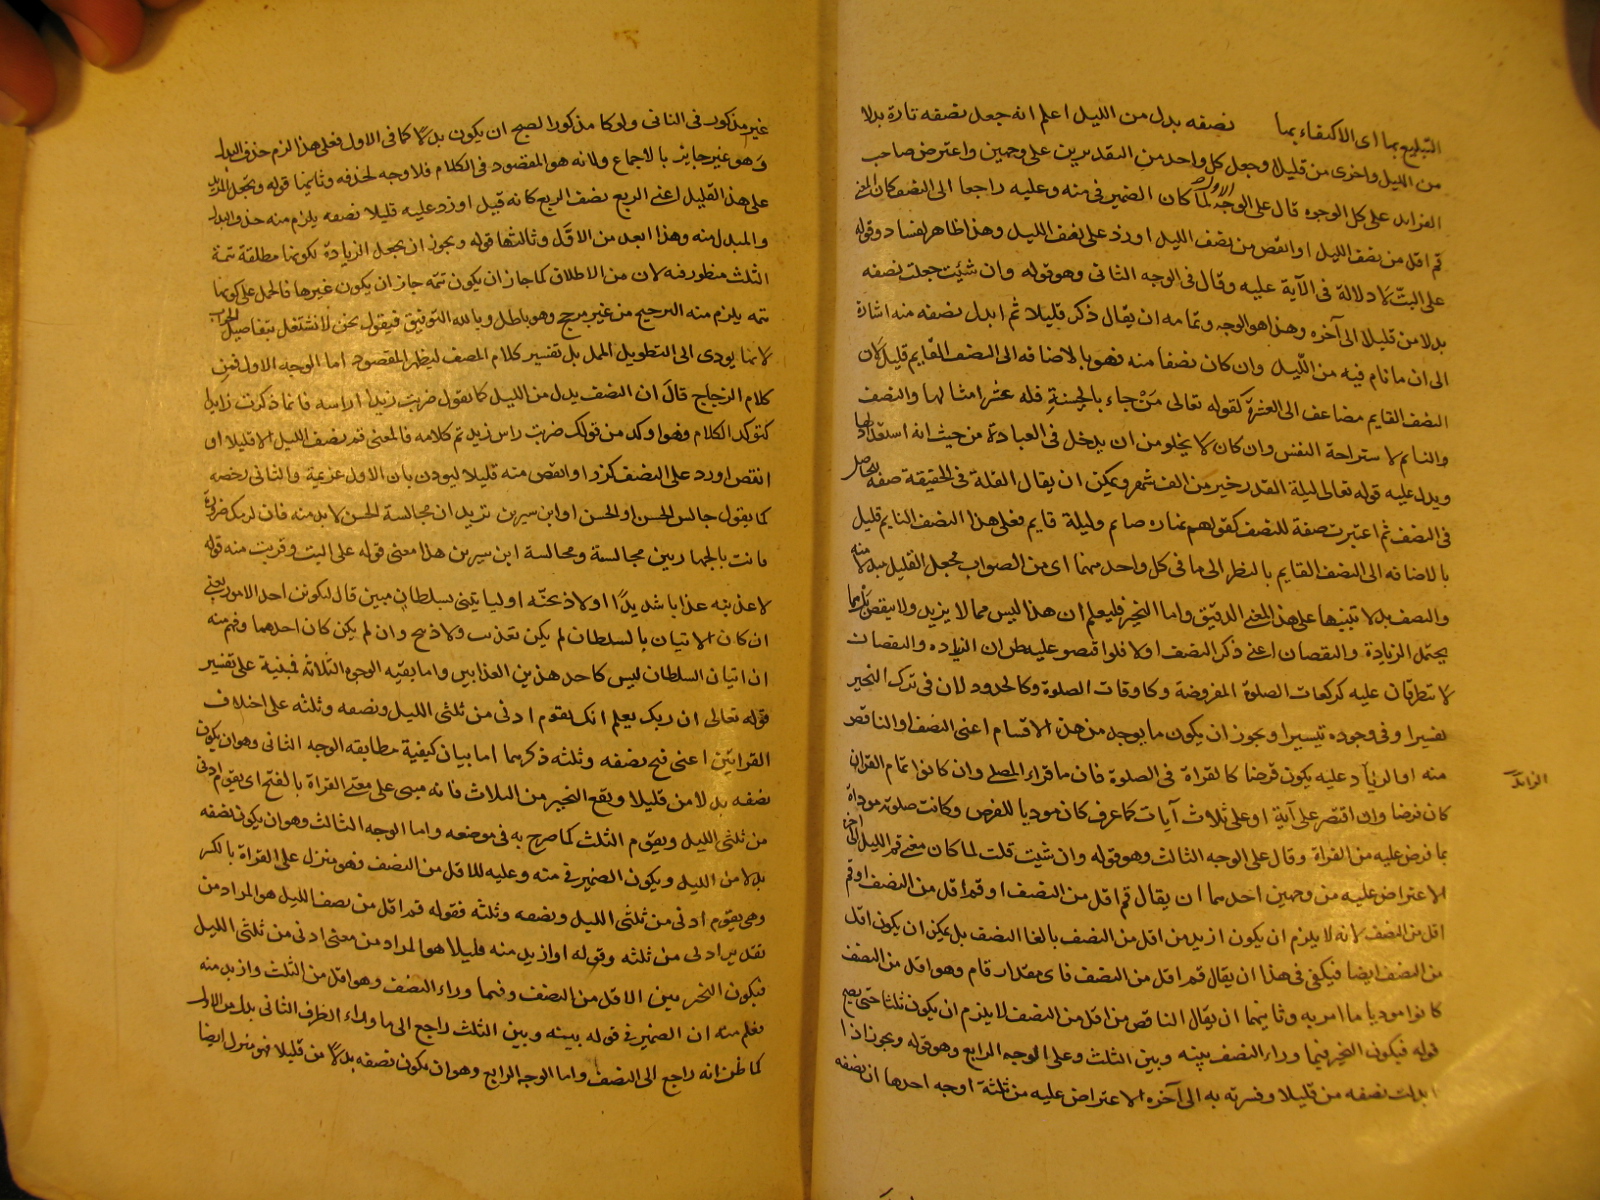 التبليغ بما اى الاكتفاء بما نصفه بدل من الليل اعلم انه جعل نصفه تارة بدلا
من الليل واخرى من قليلا وجعل كل واحد من التقديرين على وجهين واعترض صاحب
الفرايد على كل الوجوه قال على الوجه الاول لما كان الضمير فى منه وعليه راجعا الى النصف كان المعنى
قم اقل من نصف الليل او انقص من نصف الليل او زد على نصف الليل وهذا ظاهر الفساد وقوله
على البت لا دلالة فى الآية عليه وقال فى الوجه الثانى وهو قوله وان شئت جعلت نصفه
بدلا من قليلا الى آخره وهذا هو الوجه وتمامه ان يقال ذكر قليلا ثم ابدل نصفه منه اشارة
الى ان ما نام فيه من الليل وان كان نصفا منه فهو بالاضافه الى النصف القايم قليل لان
النصف القايم مضاعف الى العشرة كقوله تعالى من جاء بالحسنة فله عشر امثالها والنصف
والنايم لاستراحة النفس وان كان لا يخلو من ان يدخل فى العبادة من حيث انه استعداد لها
ويدل عليه قوله تعالى ليلة القدر خير من الف شهر ويمكن ان يقال القلة فى الحقيقة صفة لحاصل
فى النصف ثم اعتبرت صفة للنصف كقولهم نهاره صايم وليلة قايم فعلى هذا النصف النايم قليل
بالاضافه الى النصف القايم بالنظر الى ما فى كل واحد منهما اى من الثواب فجعل القليل مبدلا منه
والنصف بدلا تنبيها على هذا المعنى الدقيق واما التخيير فليعلم ان هذا ليس مما لا يزيد ولا ينقص بل مما
يحتمل الزيادة والنقصان اعنى ذكر النصف اولا فلو اقتصر عليه ظن ان الزياده والنقصان
لا تتطرقان عليه كركعات الصلوة المفروضة وكاوقات الصلوة وكالحدود لان فى ترك التخيير
تعسيرا وفى وجوده تيسيرا ويجوز ان يكون ما يوجد من هذه الاقسام اعنى النصف او الناقص
منه او الزيادة عليه يكون فرضا كالقراة فى الصلوة فان ما قراء المصلى وان كانوا تمام القران
الزائد
كان فرضا وان اقتصر على آية او على ثلاث آيات كما عرف كان موديا للفرض وكانت صلوته موداة
بما فرض عليه من القراة وقال على الوجه الثالث وهو قوله وان شئت قلت لما كان معنى قم الليل الى آخره
الاعتراض عليه من وجهين احدهما ان يقال قم اقل من النصف او قم اقل من النصف او قم
اقل من النصف لانه لا يلزم ان يكون ازيد من اقل من النصف بالغا النصف بل يمكن ان يكون اقل
من النصف ايضا فيكفى فى هذا ان يقال قم اقل من النصف فاى مقدار قام وهو اقل من النصف
كانوا موديا ما امر به وثانيهما ان يقال الناقص من اقل من النصف لا يلزم ان يكون ثلثا حتى يصح
قوله فيكون التخيير فيما وراء النصف بينه وبين الثلث وعلى الوجه الرابع وهو قوله ويجوز اذا
ابدلت نصفه من قليلا وفسرته به الى آخره الاعتراض عليه من ثلثة اوجه احدها ان نصفه
غير مذكور فى الثانى ولو كان مذكورا لصح ان يكون بدلا كما فى الاول فعلى هذا لزم حذف البدل
وهو غير جايز بالاجماع ولانه هو المقصود فى الكلام فلا وجه لحذفه وثانيها قوله ويجعل المزيد
على هذا القليل اعنى الربع نصف الربع كانه قيل او زد عليه قليلا نصفه يلزم منه حذف البدل
والمبدل منه وهذا ابعد من الاول وثالثها قوله ويجوز ان يجعل الزيادة لكونها مطلقة تتمة
الثلث منظور فيه لان من الاطلاق كما جاز ان يكون تتمه جاز ان يكون غيرها فالحمل على كونها
تتمه يلزم منه الترجيح من غير مرجح وهو باطل وبالله التوفيق فيقول نحن لا نشتغل بتفاصيل الجواب
لانها يودى الى التطويل الممل بل نفسر كلام المصنف ليظهر المقصود اما الوجه الاول فمن
كلام الزجاج قال ان النصف بدل من الليل كما تقول ضربت زيدا راسه فانما ذكرت زيدا
لتوكد الكلام وهو اوكد من قولك ضربت راس زيد تم كلامه فالمعنى قم نصف الليل الا قليلا او
انقص او زد على النصف كرر او انقص منه قليلا ليوذن بان الاول عزيمة والثانى رخصه
كما يقول جالس الحسن او الحسن او ابن سيرين تريد ان مجالسة الحسن لا بد منه فان لم يك ضرورة
فانت بالخيار بين مجالسة ومجالسة ابن سيرين هذا معنى قوله على البت وقريب منه قوله
لاعذبنه عذابا شديدا او لاذبحنه او لياتينى بسلطان مبين قال ليكونن احد الامور يعنى
ان كان الاتيان بالسلطان لم يكن تعذيب ولا ذبح وان لم يكن كان احدهما وفهم منه
ان اتيان السلطان ليس كاحد هذين العذابين واما بقيه الوجوه الثلاثة فمبنية على تفسير
قوله تعالى ان ربك يعلم انك تقوم ادنى من ثلثى الليل ونصفه وثلثه على اختلاف
القرائتين اعنى فتح نصفه وثلثه ذكرهما اما بيان كيفية مطابقه الوجه الثانى وهو ان يكون
نصفه بدلا من قليلا ويقع التخيير من الثلاث فانه مبنى على معنى القراة بالفتح اى يقوم ادنى
من ثلثى الليل ويقوم الثلث كما صرح به فى موضعه واما الوجه الثالث وهو ان يكون نصفه
بدلا من الليل ويكون الضمير فى منه وعليه للاقل من النصف فهو منزل على القراة بالكسر
وهى يقوم ادنى من ثلثى الليل ونصفه وثلثه فقوله قم اقل من نصف الليل هو المراد من
تقدير ادنى من ثلثه وقوله او ازيد منه قليلا هو المراد من معنى ادنى من ثلثى الليل
فيكون التخيير بين الاقل من النصف وفيما وراء النصف وهو اقل من الثلث وازيد منه
فعلم منه ان الضمير فى قوله بينه وبين الثلث راجع الى ما وراء الظرف الثانى بدل من الاول
كما ظن انه راجع الى النصف واما الوجه الرابع وهو ان يكون نصفه بدلا من قليلا فهو منزل ايضا